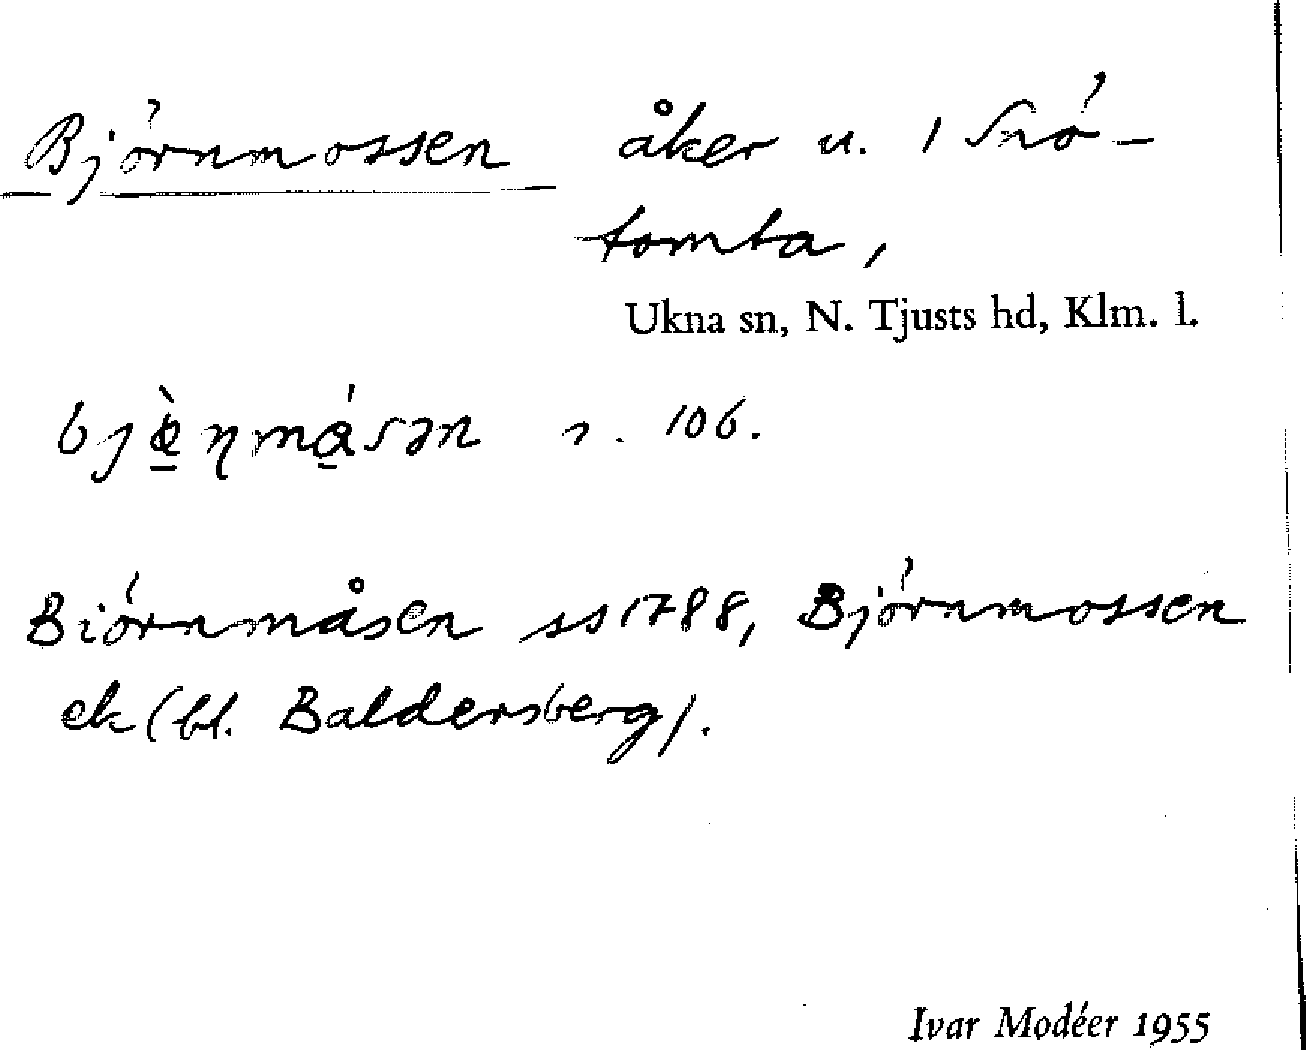 Björnmossen åker u. 1 Snö-
tomta,
Ukna sn, N. Tjusts hd, Klm. l.
106.
Biörnmåsen ss 1788, Björnmossen
ek (bl. Baldersberg).
Ivar Modéer 1955